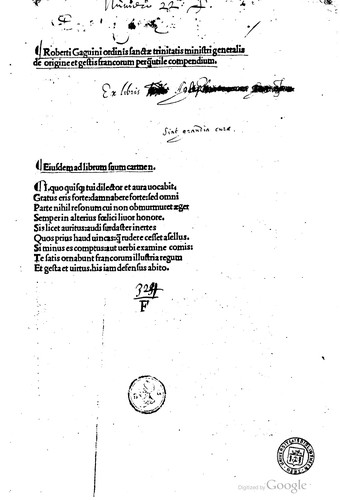 ¶ Roberti Gaguini ordinis sanctæ trinitatis ministri generalis
de origine et gestis francorum perq̃utile compendium.
Ex libris
Sint grandia curæ.
¶ Eiusdem ad librum suum carmen.
quo quisq; tui dilector et aura uocabit,
Gratus eris forte: damnabere forte: sed omni
Parte nihil resonum cui non obmurmuret æger
Semper in alterius fœlici liuor honore.
Sis licet auritus: audi surdaster inertes
Quos prius haud uincas: q̃ rudere cesset asellus.
Si minus es comptus: aut uerbi examine comis:
Te satis ornabunt francorum illustria regum
Et gesta et uirtus. his iam defensus abito.
F
Digitized by Google